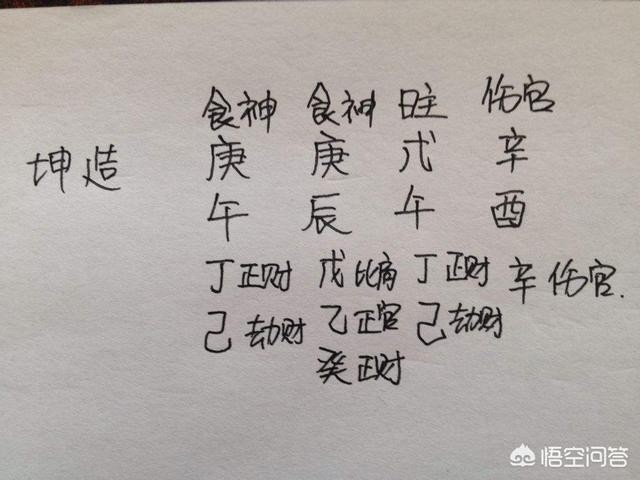 食神 食神 日主 伤官
坤造 庚 庚 戊 辛
午 辰 午 酉
丁正财 戊比肩 丁正财 辛伤官.
己劫财 乙正官 己劫财
癸正财
悟空问答